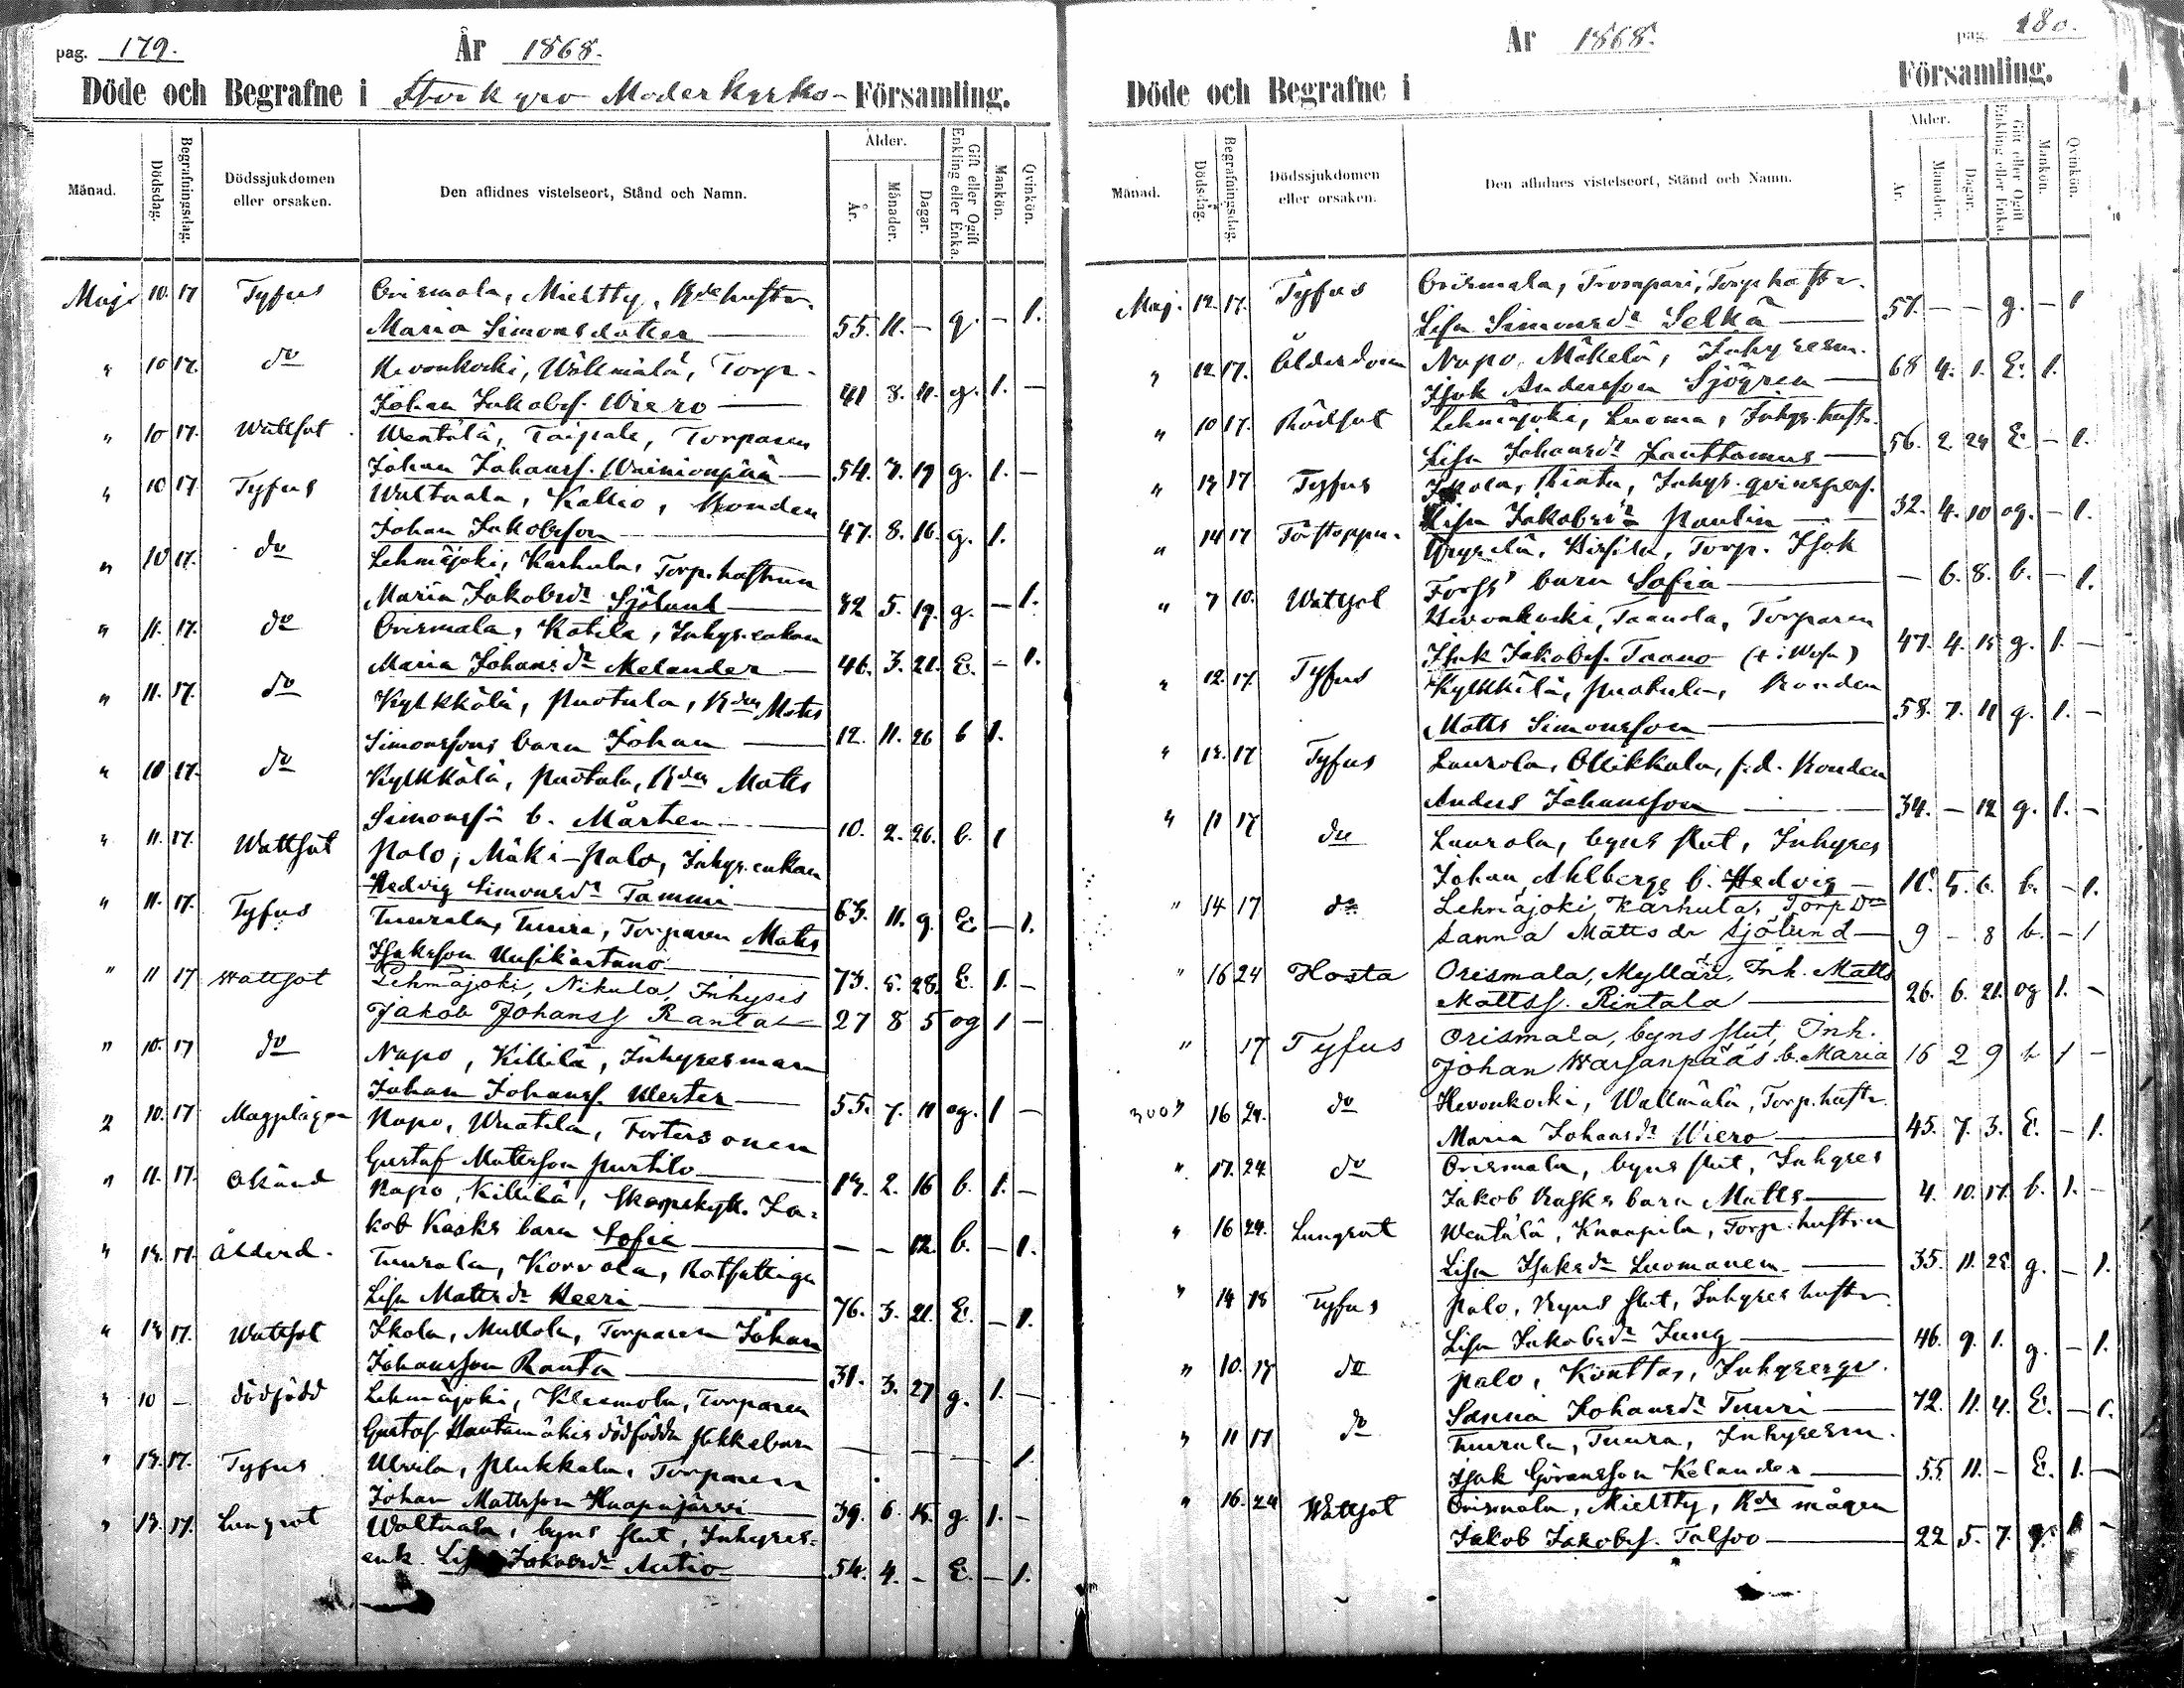 pag. 179.
År 1868.
Döde och Begrafne i Storkyro Moderkyrko- Församling.
Månad.
Dödsdag.
Begrafningsdag.
Dödssjukdomen eller orsaken.
Den aflidnes vistelseort, Stånd och Namn.
Ålder.
År.
Månader.
Dagar.
Gift eller Ogift
Enkling eller Enka.
Mankön.
Qvinkön.
Maji 10. 17 Tyfus Orismala, Mieltty, Bde hustr.
Maria Simonsdotter — 55. 11. — g. — 1.
" 10 17. do Hevonkoski, Wällmälä, Torp.
Johan Jakobss. Wiero — 41 8. 11. g. 1. —
" 10 17. Wattsot Wentälä, Taipale, Torparen
Johan Johanss. Wainionpää — 54. 7. 19 g. 1. —
" 10 17. Tyfus Waltaala, Kallio, Bonden
Johan Jakobsson — 47. 8. 16. g. 1.
" 10 17. do Lehmäjoki, Karhula, Torp. hustrun
Maria Jakobsdr Sjölund — 42 5. 19. g. — 1.
" 11. 17. do Orismala, Kotila, Inhys. enkan
Maria Johansdr Melander — 46. 3. 21. E. — 1.
" 11. 17. do Kylkkälä, Puotula, Bdens Matts
Simonssons barn Johan — 12. 11. 26 b 1.
" 10 17. do Kylkkälä, Puotula, Bden Matts
Simonss b. Mårten — 10. 2. 26. b. 1
" 11. 17. Wattsot Palo, Mäki-Palo, Inhys. enkan
Hedvig Simonsdr Tammi — 63. 11. 9. E. — 1.
" 11. 17. Tyfus Tuurala, Tuura, Torparen Matts
Isaksson Uusikartano — 73. 5. 28. E. 1. —
" 11 17 Wattsot Lehmäjoki, Nikula, Inhyses
Jakob Johanss Ranta — 27 8 5 og 1 —
" 10. 17 do Napo, Killilä, Inhysesman
Johan Johanss. Wester — 55. 7. 11 og. 1 —
" 10. 17 Magplågen Napo, Wuotila, Torparsonen
Gustaf Mattsson Purtilo — 14. 2. 16 b. 1. —
" 11. 17. Okänd Napo, Killilä, Skarpskytt. Ja-
kob Kasks barn Sofia — — — 12. b. — 1.
" 14. 17. Ålderd. Tuurala, Korvola, Rotfattiga
Lisa Mattsdr Heeri — 76. 3. 21. E. — 1.
" 14 17. Wattsot Ikola, Mullola, Torparen Johan
Johansson Ranta — 31. 3. 27 g. 1. —
" 10 — dödfödd Lehmäjoki, Klemola, Torparen
Gustaf Hautamäkis dödfödda flickebarn — — — — 1
" 14. 17. Tyfus Ulvila, Pukkala, Torparen
Johan Mattsson Haapajärvi — 39. 6. 15. g. 1. —
" 14. 17. Lungsot Waltaala, byns slut, Inhyses-
enk. Lisa Jakobsdr Autio — 54. 4. — E. — 1.
År 1868.
pag. 180.
Döde och Begrafne i
Församling.
Månad.
Dödsdag.
Begrafningsdag.
Dödssjukdomen eller orsaken.
Den aflidnes vistelseort, Stånd och Namn.
Ålder.
År.
Månader.
Dagar.
Gift eller Ogift
Enkling eller Enka.
Mankön.
Qvinkön.
Maj. 12. 17. Tyfus Orismala, Trompari, Torp. hustr.
Lisa Simonsdr Selkä — 57. — — g. — 1
" 12 17. Ålderdom Napo, Mäkelä, Inhysesm.
Isak Andersson Sjögren — 68 4. 1. E. 1.
" 10 17. Rödsot Lehmäjoki, Luoma, Inhys. hustr.
Lisa Johansdr Lauttamus — 56. 2. 24 E. — 1.
" 14 17 Tyfus Ikola, Rinta, Inhys. qvinspers.
Lisa Jakobsdr Paulin — 32. 4. 10 og. — 1.
" 14 17 Förstoppn. Yryselä, Hirsilä, Torp. Isak
Forss' barn Sofia — — 6. 8. b. — 1.
" 7 10. Wattsot Hevonkoski, Taanola, Torparen
Isak Jakobss. Taano (+ i Wasa) 47. 4. 15 g. 1. —
" 12. 17. Tyfus Kylkkälä, Puotula, Bonden
Matts Simonsson — 58. 7. 11 g. 1. —
" 14. 17 Tyfus Laurola, Ollikkala, f.d. Bonden
Anders Johansson — 34. — 12 g. 1. —
" 11 17 do Laurola, byns slut, Inhyses
Johan Ahlbergs b. Hedvig — 10. 5. 6. b. — 1.
" 14 17 do Lehmäjoki, Karhula, Torp Dr
Sanna Mattsdr Sjölund — 9 — 8 b. — 1
" 16 24 Hosta Orismala, Mylläri, Inh. Matts
Mattss. Rintala — 26. 6. 21. og 1. —
" 17 Tyfus Orismala, byns slut, Inh.
Johan Warsanpääs b. Maria 16 2 9 b 1 —
16 24. do Hevonkoski, Wallmälä, Torp. hustr.
Maria Johansdr Wiero — 45. 7. 3. E. — 1.
" 17. 24. do Orismala, byns slut, Inhyses
Jakob Rasks barn Matts — 4. 10. 17. b. 1. —
" 16 24. Lungsot Wentälä, Knaapila, Torp. hustrun
Lisa Isaksdr Luomanen — 35. 11. 25 g. — 1.
" 14 18 Tyfus Palo, Byns slut, Inhyses hustr.
Lisa Jakobsdr Jung — 46. 9. 1. g. — 1.
" 10. 17 do Palo, Konttas, Inhysesqv.
Sanna Johansdr Tuuri — 72. 11. 4. E. — 1.
" 11 17 do Tuurala, Tuura, Inhysesm.
Isak Göransson Kelander — 55. 11. — E. 1. —
" 16. 24 Wattsot Orismala, Mieltty, Bde mågen
Jakob Jakobss. Talsoo — 22 5. 7. g. 1 —